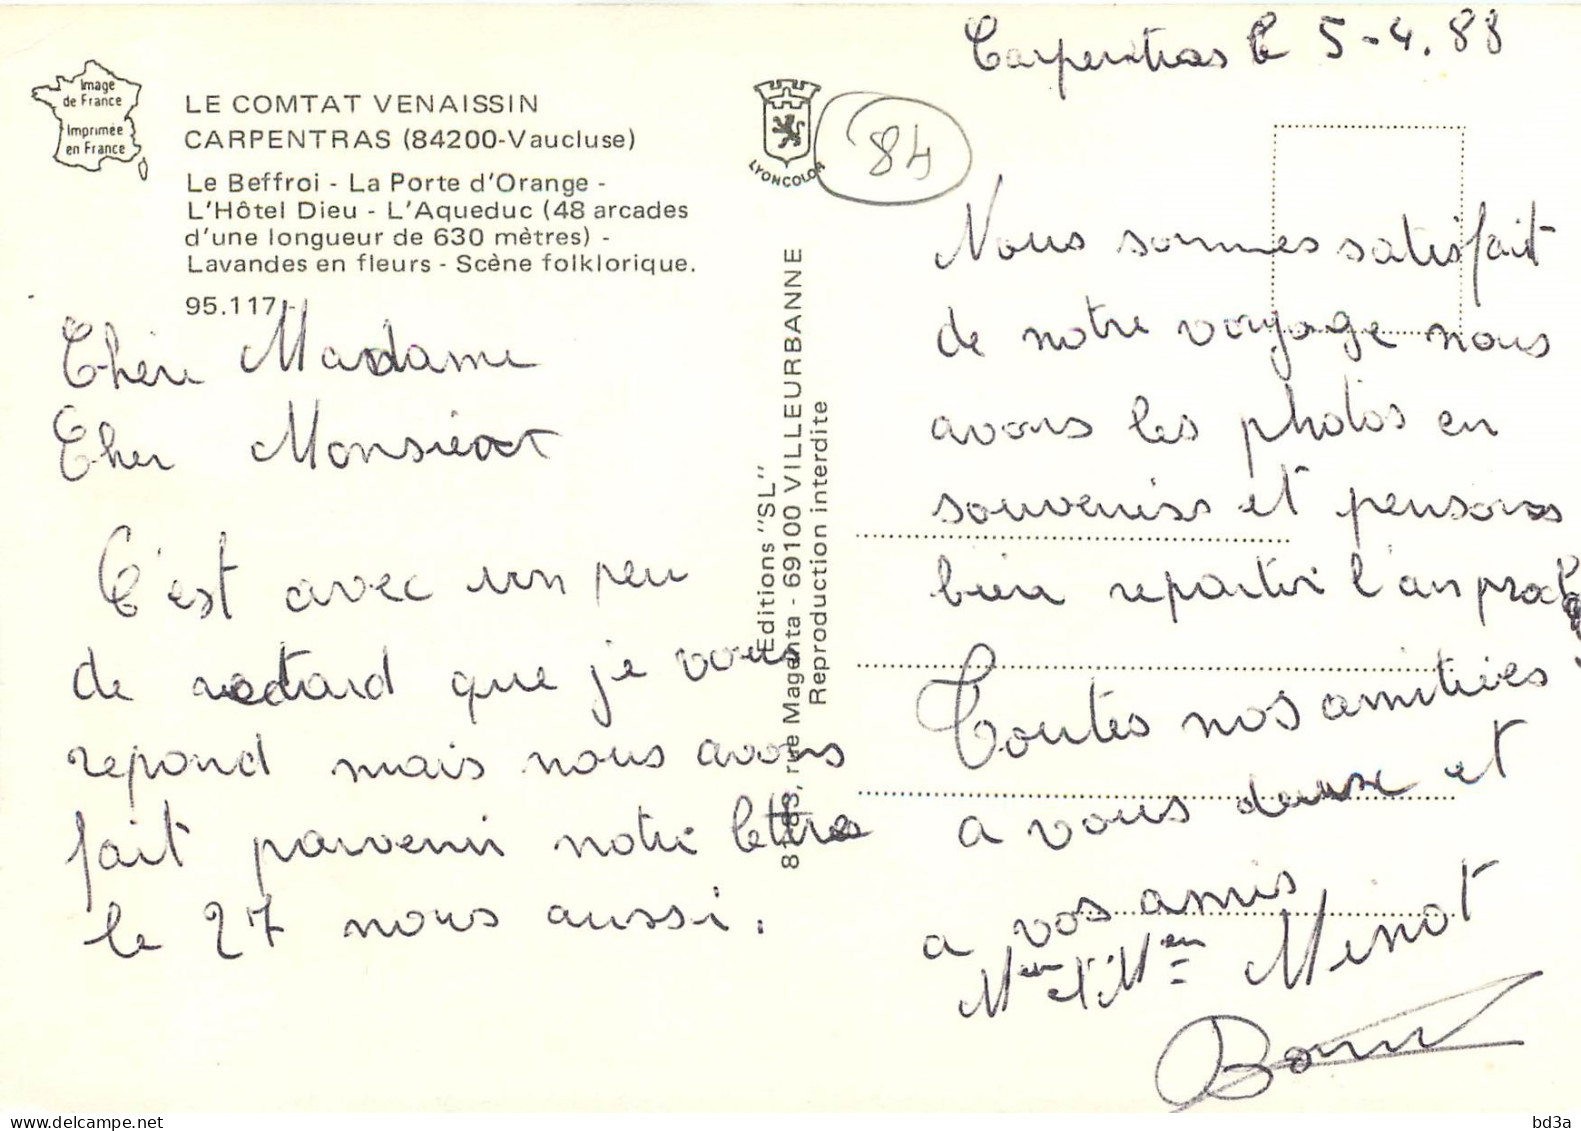 Image
de France
Imprimée
en France
LE COMTAT VENAISSIN
CARPENTRAS (84200-Vaucluse)
Le Beffroi - La Porte d'Orange -
L'Hôtel Dieu - L'Aqueduc (48 arcades
d'une longueur de 630 mètres) -
Lavandes en fleurs - Scène folklorique.
95.117 -
Chère Madame
Cher Monsieur
C'est avec un peu
de retard que je vous
repond mais nous avons
fait parvenir notre lettre
le 27 nous aussi.
LYONCOLOR
84
Editions "SL"
81-83, rue Magenta - 69100 VILLEURBANNE
Reproduction interdite
Carpentras le 5-4.88
Nous sommes satisfait
de notre voyage nous
avons les photos en
souvenirs et pensons
bien repartir l'an proch
Toutes nos amitiées
a vous deux et
a vos amis
Minot
bd3a